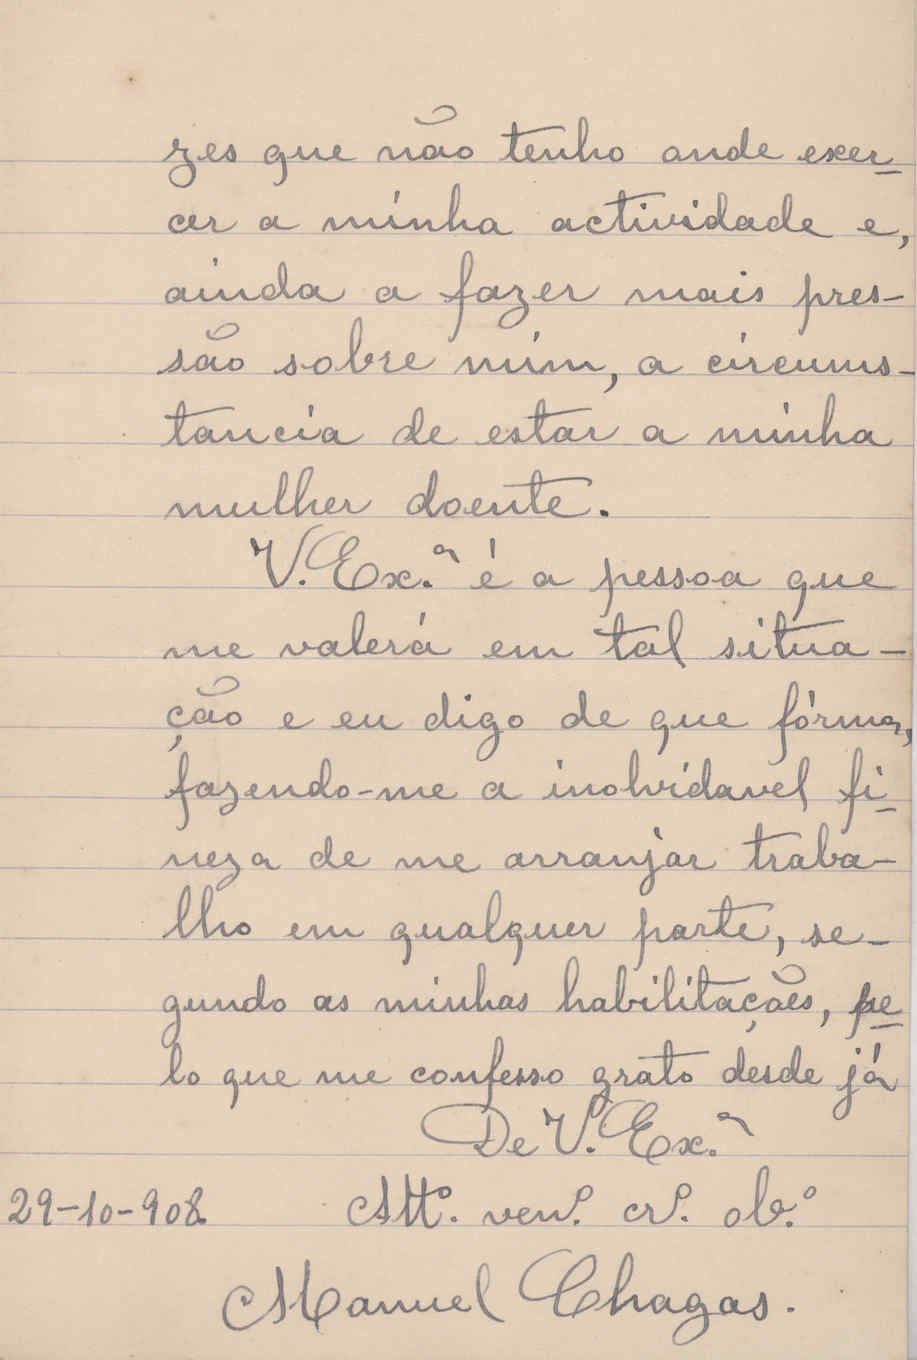 zes que não tenho onde exer-
cer a minha actividade e,
ainda a fazer mais pres-
são sobre mim, a circums-
tancia de estar a minha
mulher doente.
V. Ex.ª é a pessoa que
me valerá em tal situa-
ção e eu digo de que fórma,
fazendo-me a inolvidavel fi-
neza de me arranjar traba-
lho em qualquer parte, se-
gundo as minhas habilitações, pe-
lo que me confesso grato desde já
De V. Ex.ª
29-10-908 Att.º ven.º cr.º ob.º
Manuel Chagas.